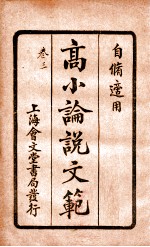 自備適用
高小論說文範
卷三
上海會文堂書局發行